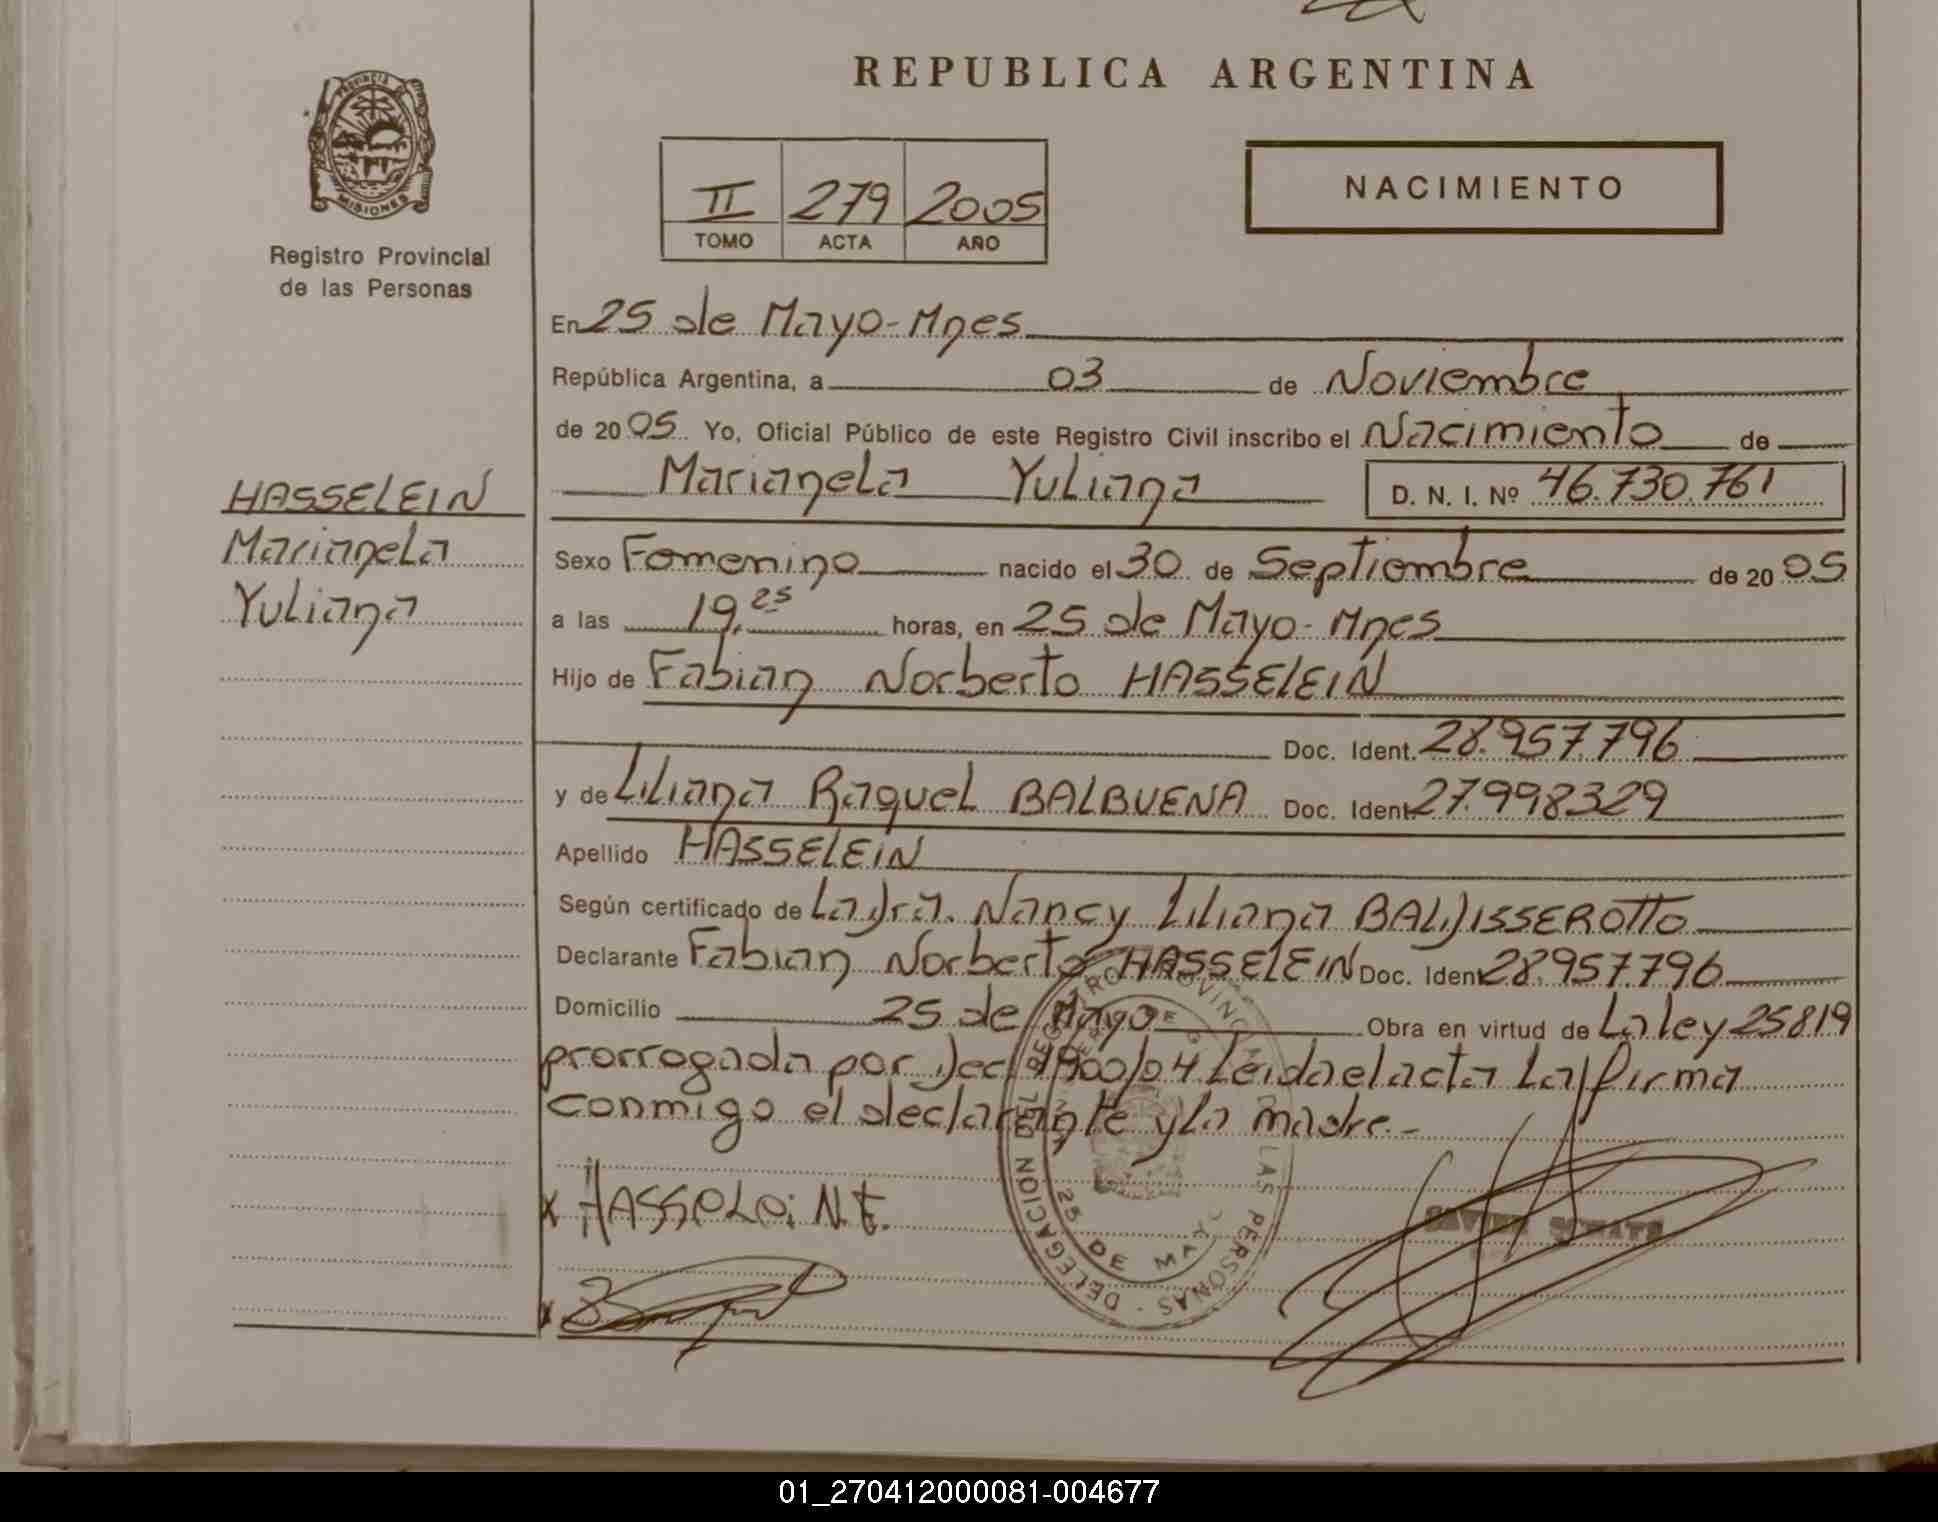 REPUBLICA ARGENTINA
PROVINCIA
MISIONES
Registro Provincial
de las Personas
II 279 2005
TOMO ACTA AÑO
NACIMIENTO
En 25 de Mayo-Mnes
República Argentina, a 03 de Noviembre
de 2005 Yo, Oficial Público de este Registro Civil inscribo el Nacimiento de
Marianela Yuliana D. N. I. Nº 46.730.761
HASSELEIN
Marianela
Yuliana
Sexo Femenino nacido el 30 de Septiembre de 2005
a las 19,25 horas, en 25 de Mayo-Mnes
Hijo de Fabian Norberto HASSELEIN
Doc. Ident. 28.957.796
y de Liliana Raquel BALBUENA Doc. Ident 27.998329
Apellido HASSELEIN
Según certificado de La Dra. Nancy Liliana BALDISSEROTTO
Declarante Fabian Norberto HASSELEIN Doc. Ident 28.957.796
Domicilio 25 de Mayo Obra en virtud de La ley 25819
prorrogada por Dec 1900/04 Leida el acta La firma
conmigo el declarante y La madre.-
x HASSELEiN.F.
x
DELEGACION DEL REGISTRO PROVINCIAL DE LAS PERSONAS
25 DE MAYO
01_270412000081-004677